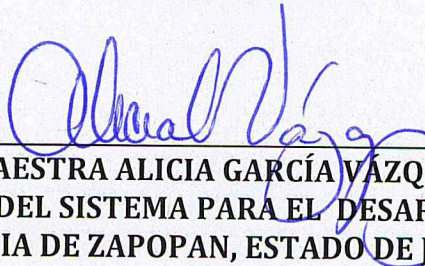 Alicia G Vázq
AESTRA ALICIA GARCÍA VÁZQ
DEL SISTEMA PARA EL DESAR
IA DE ZAPOPAN, ESTADO DE J